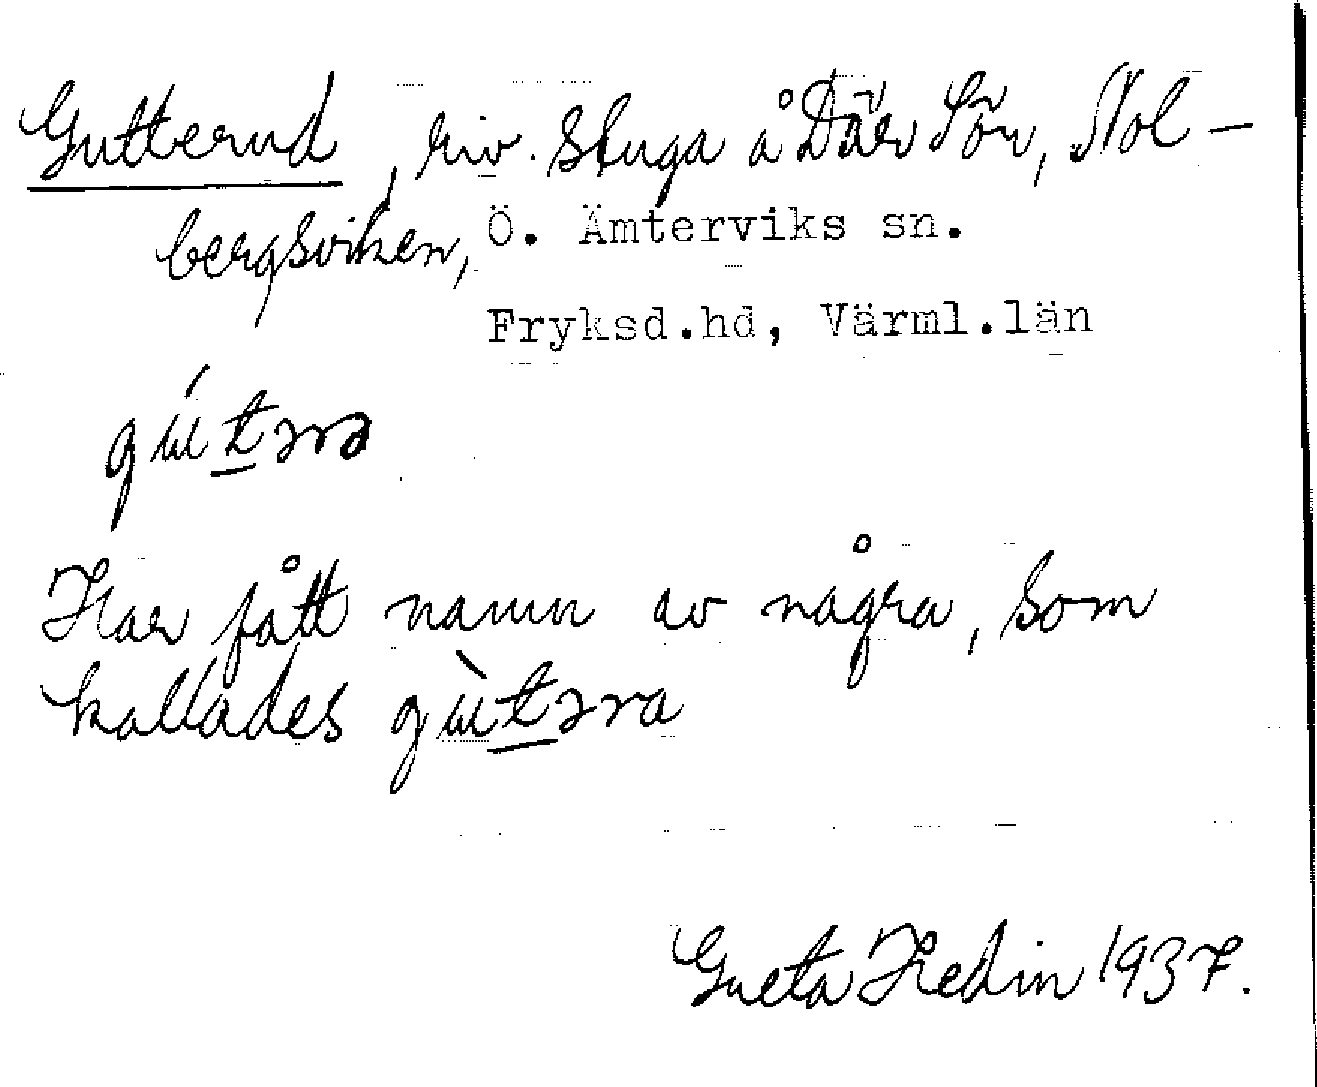 Gutterud, riv. stuga å Där Sör, Nol-
bergsviken, Ö. Ämterviks sn.
Fryksd.hd, Värml.län
gút̲ərə
Har fått namn av några, som
kallades gùt̲əra
Greta Hedin 1937.